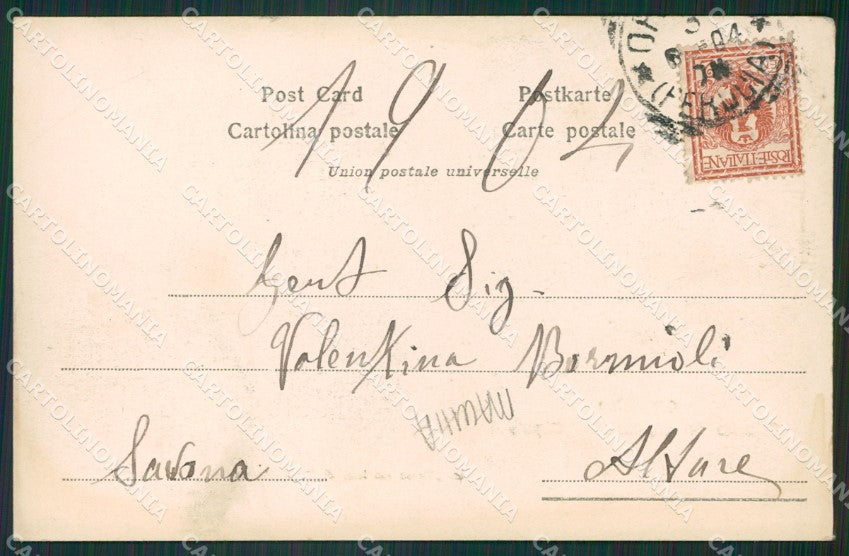 Post Card Postkarte
Cartolina postale Carte postale
Union postale universelle
1904
04
(PERUGIA)
POSTE ITALIANE
Gent Sig.
Valentina Bormioli
Savona
Altare
CARTOLINOMANIA